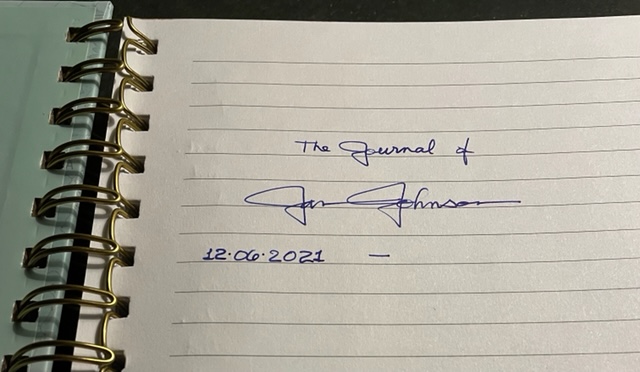 The Journal of
Jan Johnson
12.06.2021 —